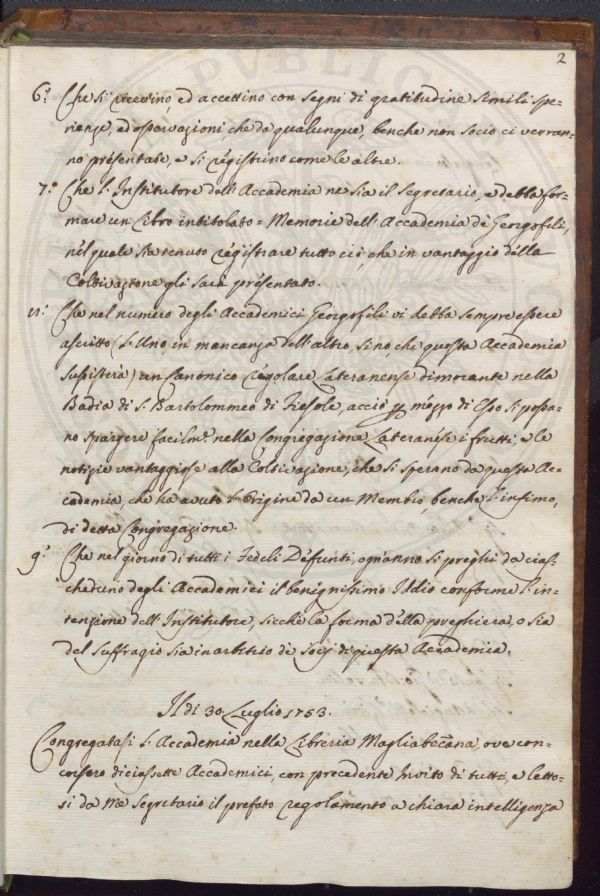 2
6.° Che si ricevino, ed accettino con segni di gratitudine simili spe=
rienze, ed osservazioni, che da qualunque, benche non socio ci verran=
no présentate, e si régistrino come le altre.
7.° Che l'Institutore dell'Accademia ne sia il Segretario, e debba for=
mare un Libro intitolato = Memorie dell'Accademia dè Georgofili,
nel quale sia tenuto régistrare tutto ciò, che in vantaggio della
Coltivazione gli sarà présentato.
Che nel numero degli Accademici Georgofili vi debba sempre essere
ascritto (l'Uno, in mancanza dell'altro, sinò, che questa Accademia
sussisterà) un Canonico Régolare Lateranense dimorante nella
Badia di S. Bartolommeo di Fiesole, acciò p mézzo di Esso si possa=
no spargere facilm.e nella Congregazione Lateranése i frutti, e le
notizie vantaggiose alla Coltivazione, che si sperano da questa Ac=
cademia, che ha avuto l'Origine da un Membro, benche l'infimo,
di detta Congregazione.
9.° Che nel giorno di tutti i Fedeli Défunti, ogn'anno si preghi da cias=
cheduno degli Accademici il benignissimo Iddio conforme l'in=
tenzione dell'Institutore, sicchè la forma della preghiera, o sia
del suffragio sia in arbitrio dè Socj di questa Accademia.
Il di 30. Luglio 1753.
Congregatasi l'Accademia nella Libreria Magliabecana, ove con=
corsero diciassette Accademici, con precedente Invito di tutti, e letto=
si da Me Segretario il prefato régolamento a chiara intelligenza